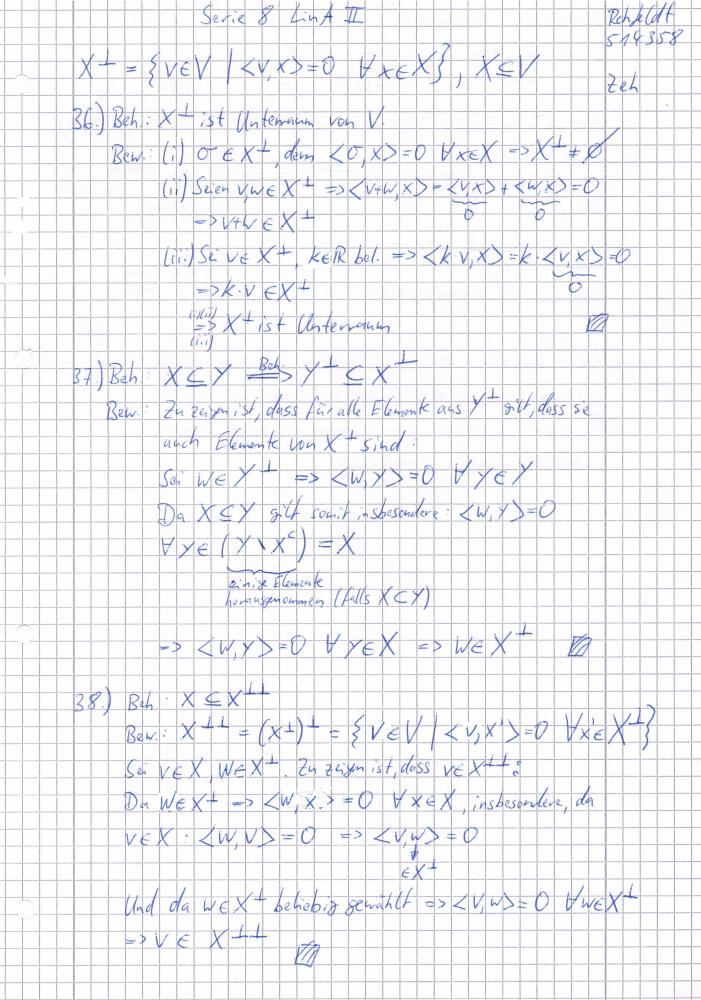 Serie 8 LinA II
Rehfeldt
514358
Zeh
X⊥ = {v∈V | <v,x>=0 ∀x∈X}, X⊆V
36.) Beh.: X⊥ ist Unterraum von V.
Bew.: (i) σ ∈ X⊥, denn <σ,x>=0 ∀x∈X => X⊥ ≠ ∅
(ii) Seien v,w∈X⊥ => <v+w,x> = <v,x> + <w,x> = 0
0 0
=> v+w ∈ X⊥
(iii) Sei v∈X⊥, k∈ℝ bel. => <k·v,x> = k·<v,x> = 0
0
=> k·v ∈ X⊥
(i)(ii)
=> X⊥ ist Unterraum
(iii)
37.) Beh.: X⊆Y =Beh.=> Y⊥ ⊆ X⊥
Bew.: Zu zeigen ist, dass für alle Elemente aus Y⊥ gilt, dass sie
auch Elemente von X⊥ sind:
Sei w∈Y⊥ => <w,y>=0 ∀y∈Y
Da X⊆Y gilt somit insbesondere: <w,y>=0
∀y∈(Y∖Xᶜ) = X
einige Elemente
herausgenommen (falls X⊂Y)
=> <w,y>=0 ∀y∈X => w∈X⊥
38.) Beh.: X ⊆ X⊥⊥
Bew.: X⊥⊥ = (X⊥)⊥ = {v∈V | <v,x'>=0 ∀x'∈X⊥}
Sei v∈X, w∈X⊥. Zu zeigen ist, dass v∈X⊥⊥:
Da w∈X⊥ => <w,x>=0 ∀x∈X, insbesondere, da
v∈X: <w,v>=0 => <v,w>=0
∈X⊥
Und da w∈X⊥ beliebig gewählt => <v,w>=0 ∀w∈X⊥
=> v ∈ X⊥⊥